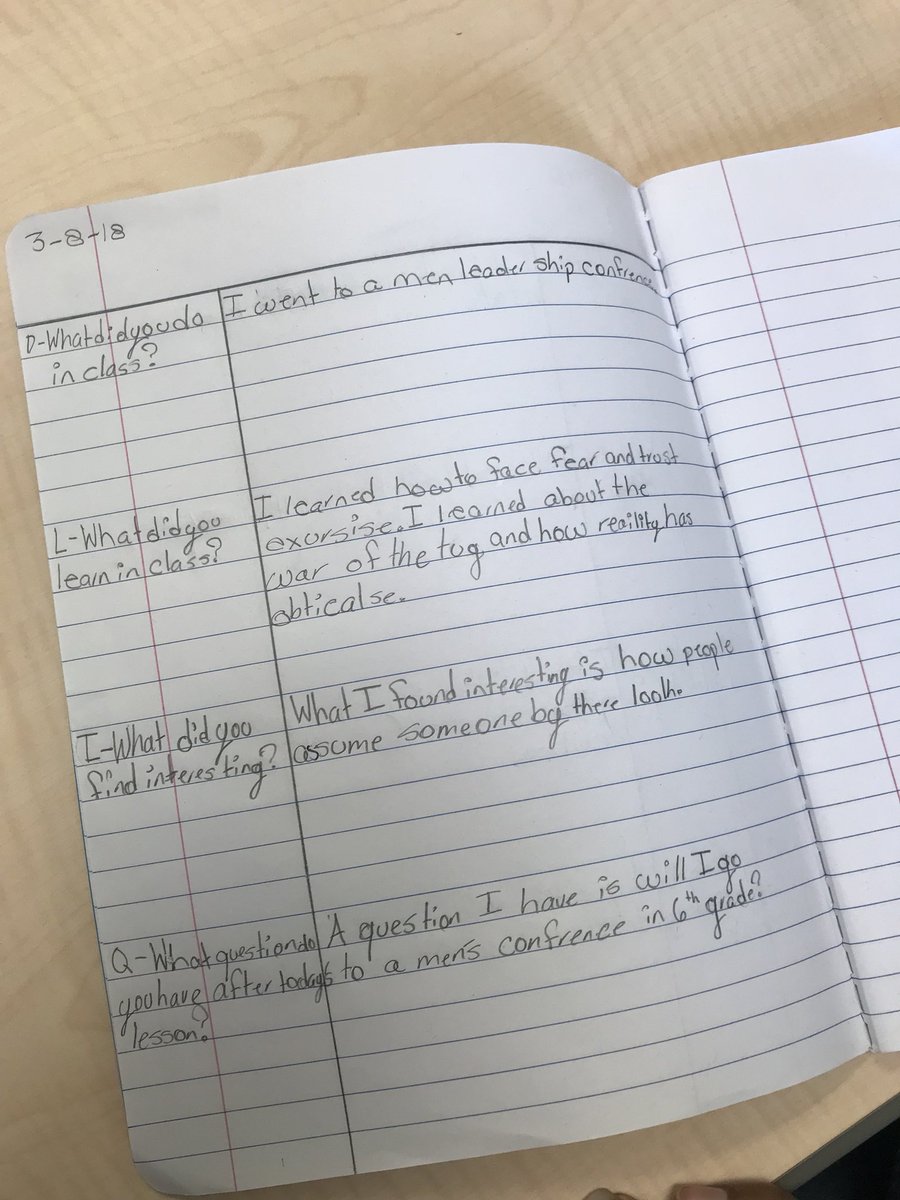 3-8-18
D-What did you do
in class?
I went to a men leader ship confrence
L-What did you
learn in class?
I learned how to face fear and trost
exorsise. I learned about the
war of the tug and how reaility has
obticalse.
I-What did you
find interesting?
What I found interesting is how people
assume someone by there look.
Q-What question do
you have after today's
lesson?
A question I have is will I go
to a men's confrence in 6th grade?